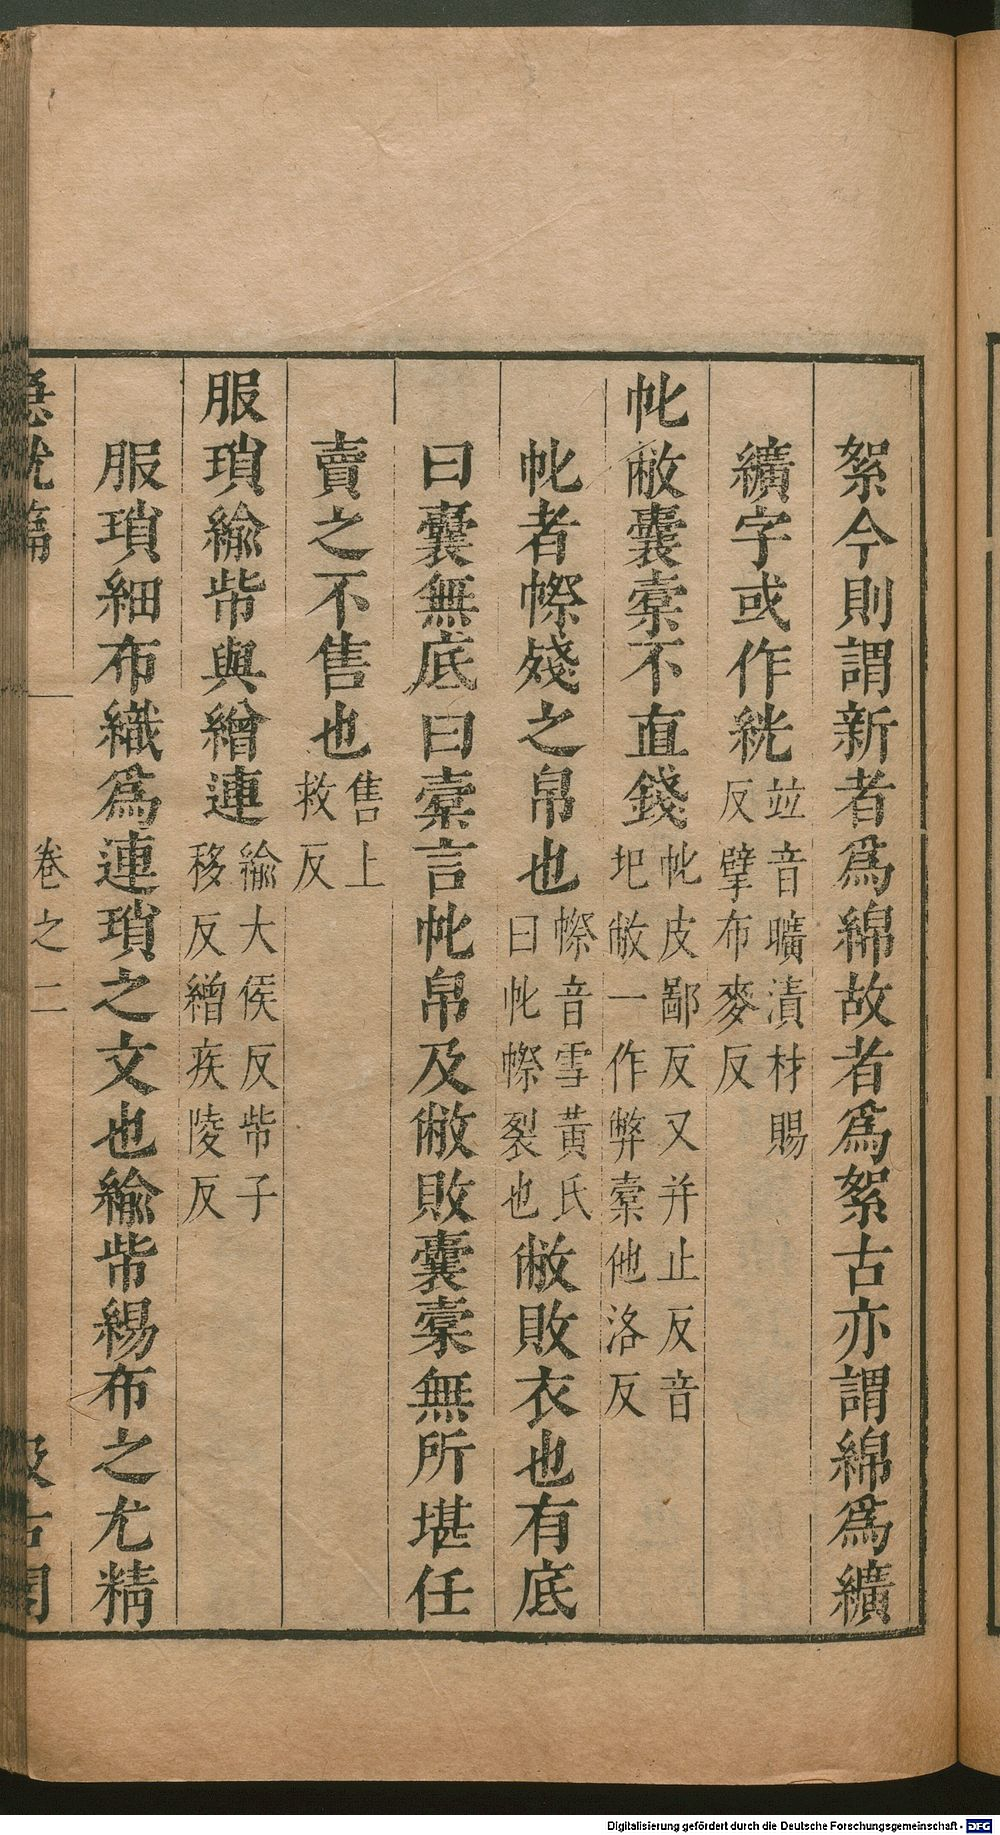 絮今則謂新者爲綿故者爲絮古亦謂綿爲纊
纊字或作絖竝音曠漬材賜反擘布麥反
㡀敝囊橐不直錢㡀皮鄙反又并止反音圯敝一作弊橐他洛反
者幏殘之帛也音雪黃氏曰裂也敝敗衣也有底
曰囊無底曰橐言帛及敝敗囊橐無所堪任
賣之不售也售上救反
服瑣緰幋與繒連緰大侯反子移反繒疾陵反
服瑣細布織爲連瑣之文也緰緆布之尤精
急就篇 卷之二 汲古閣
Digitalisierung gefördert durch die Deutsche Forschungsgemeinschaft - DFG